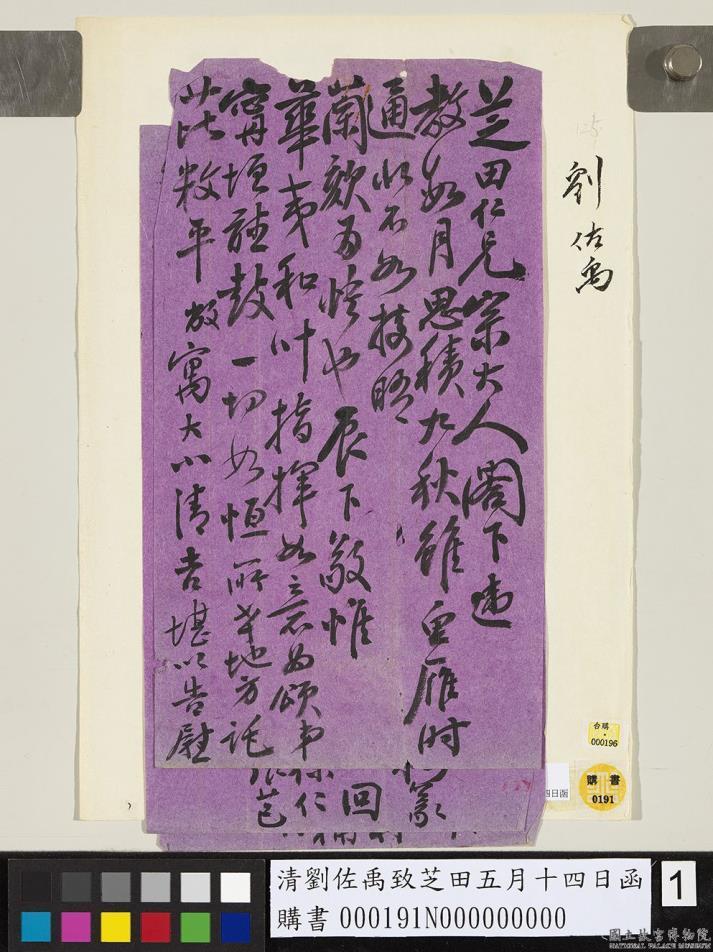 芝田仁兄宗大人閣下違
教如月思積九秋雖重雁时
通終不如接晤
蘭欵為悵也辰下敬惟
華夷和叶指揮如意為頌弟
甯垣謹鼓一切如恒所幸地方託
庇敉平敝寓大小清吉堪以告慰
劉佐禹
回
仁
台購
000196
購書
0191
四日函
清劉佐禹致芝田五月十四日函
購書000191N000000000
1
國立故宮博物院
NATIONAL PALACE MUSEUM